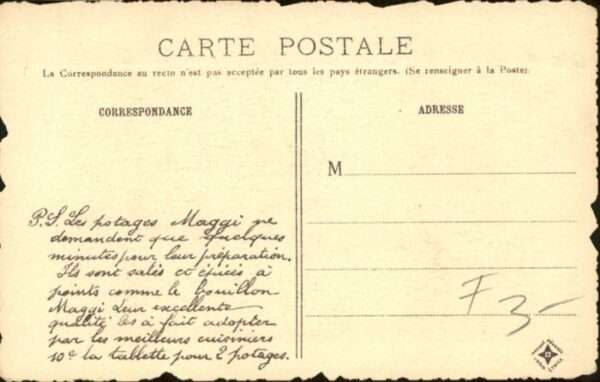 CARTE POSTALE
La Correspondance au recto n'est pas acceptée par tous les pays étrangers. (Se renseigner à la Poste).
CORRESPONDANCE
P.S. Les potages Maggi ne
demandent que quelques
minutes pour leur préparation.
Ils sont salés et épicés à
points comme le bouillon
Maggi Leur excellente
qualité les a fait adopter
par les meilleurs cuisiniers
10c la tablette pour 2 potages.
ADRESSE
M
F 3-